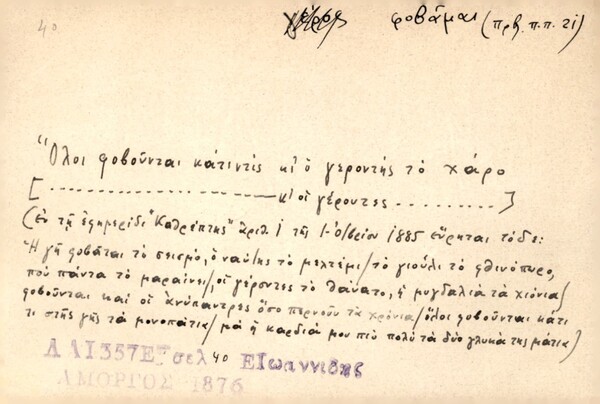 40
φοβᾶμαι (πρβ. π.π. 21)
Ὅλοι φοβοῦνται κάτι ντὶς κι' ὁ γεροντής τὸ χάρο
[ - - - - - - - - - - κι' οἱ γέροντες . . . . . . . . . ]
(ἐν τῇ ἐφημερίδι "Καθρέπτης" ἀριθ. 1 τῆς 1-8/βρίου 1885 εὕρηται τόδε:
Ἡ γῆ φοβᾶται τὸ σεισμό, ὁ ναύτης τὸ μελτέμι / τὸ γιούλι τὸ φθινόπωρο,
ποὺ πάντα τὸ μαραίνει / οἱ γέροντες τὸ θάνατο, ἡ μυγδαλιὰ τὰ χιόνια /
φοβοῦνται καὶ οἱ ἀνύπαντρες ὅσο περνοῦν τὰ χρόνια / ὅλοι φοβοῦνται κάτι
τι στῆς γῆς τὰ μονοπάτια / μὰ ἡ καρδιά μου πιὸ πολὺ τὰ δύο γλυκὰ της μάτια)
ΛΑΙ357Ε σελ 40 ΕΙωαννίδης
ΑΜΟΡΓΟΣ 1876